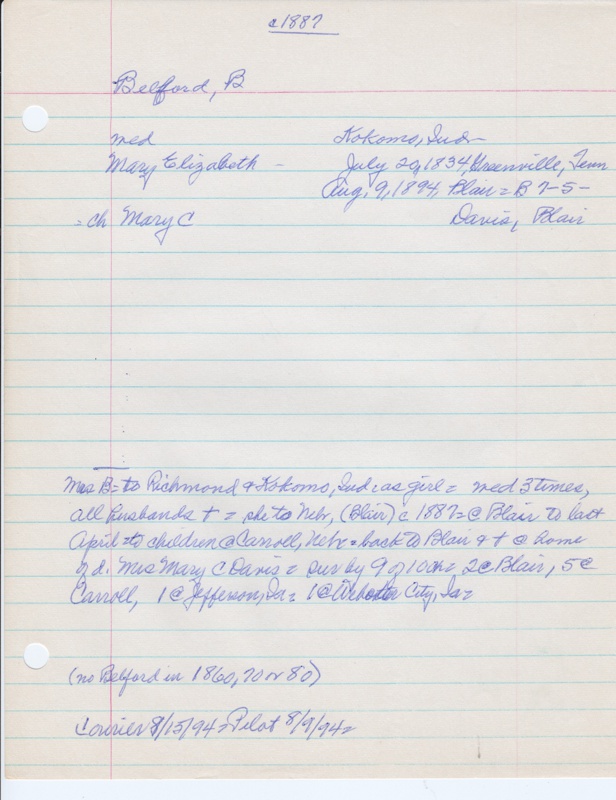 c1887
Belford, B
med Kokomo, Ind-
Mary Elizabeth - July 20, 1834, Greenville, Tenn
Aug, 9, 1894, Blair = B 7-5-
= ch Mary C Davis, Blair
Mrs B = to Richmond & Kokomo, Ind, as girl = med 3 times,
all husbands + = she to Nebr, (Blair) c 1887 = @ Blair to last
April = to children @ Carroll, Nebr = back to Blair & + @ home
of d. Mrs Mary C Davis = sur by 9 of 10 ch = 2 @ Blair, 5 @
Carroll, 1 @ Jefferson, Ia = 1 @ Webster City, Ia =
(no Belford in 1860, 70 or 80)
Courier 8/15/94 = Pilot 8/9/94 =